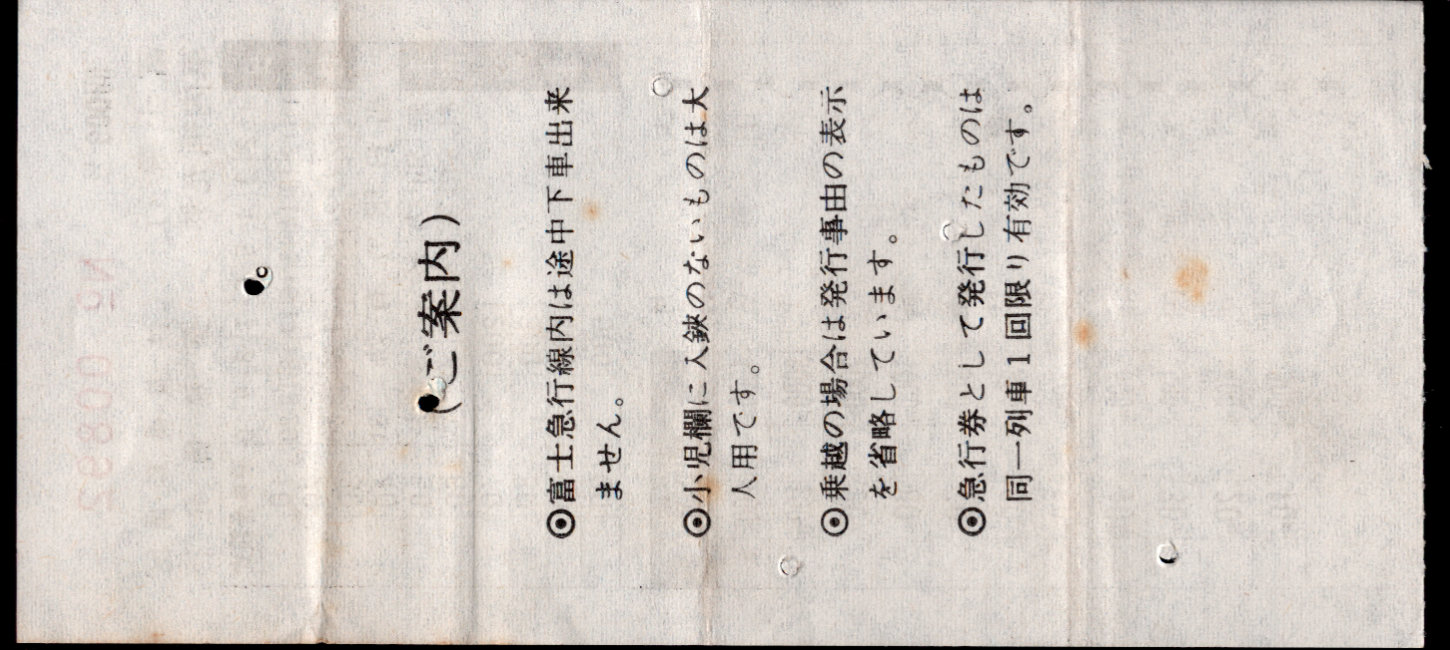 （ご案内）
◎富士急行線内は途中下車出来
ません。
◎小児欄に入鋏のないものは大
人用です。
◎乗越の場合は発行事由の表示
を省略しています。
◎急行券として発行したものは
同一列車1回限り有効です。